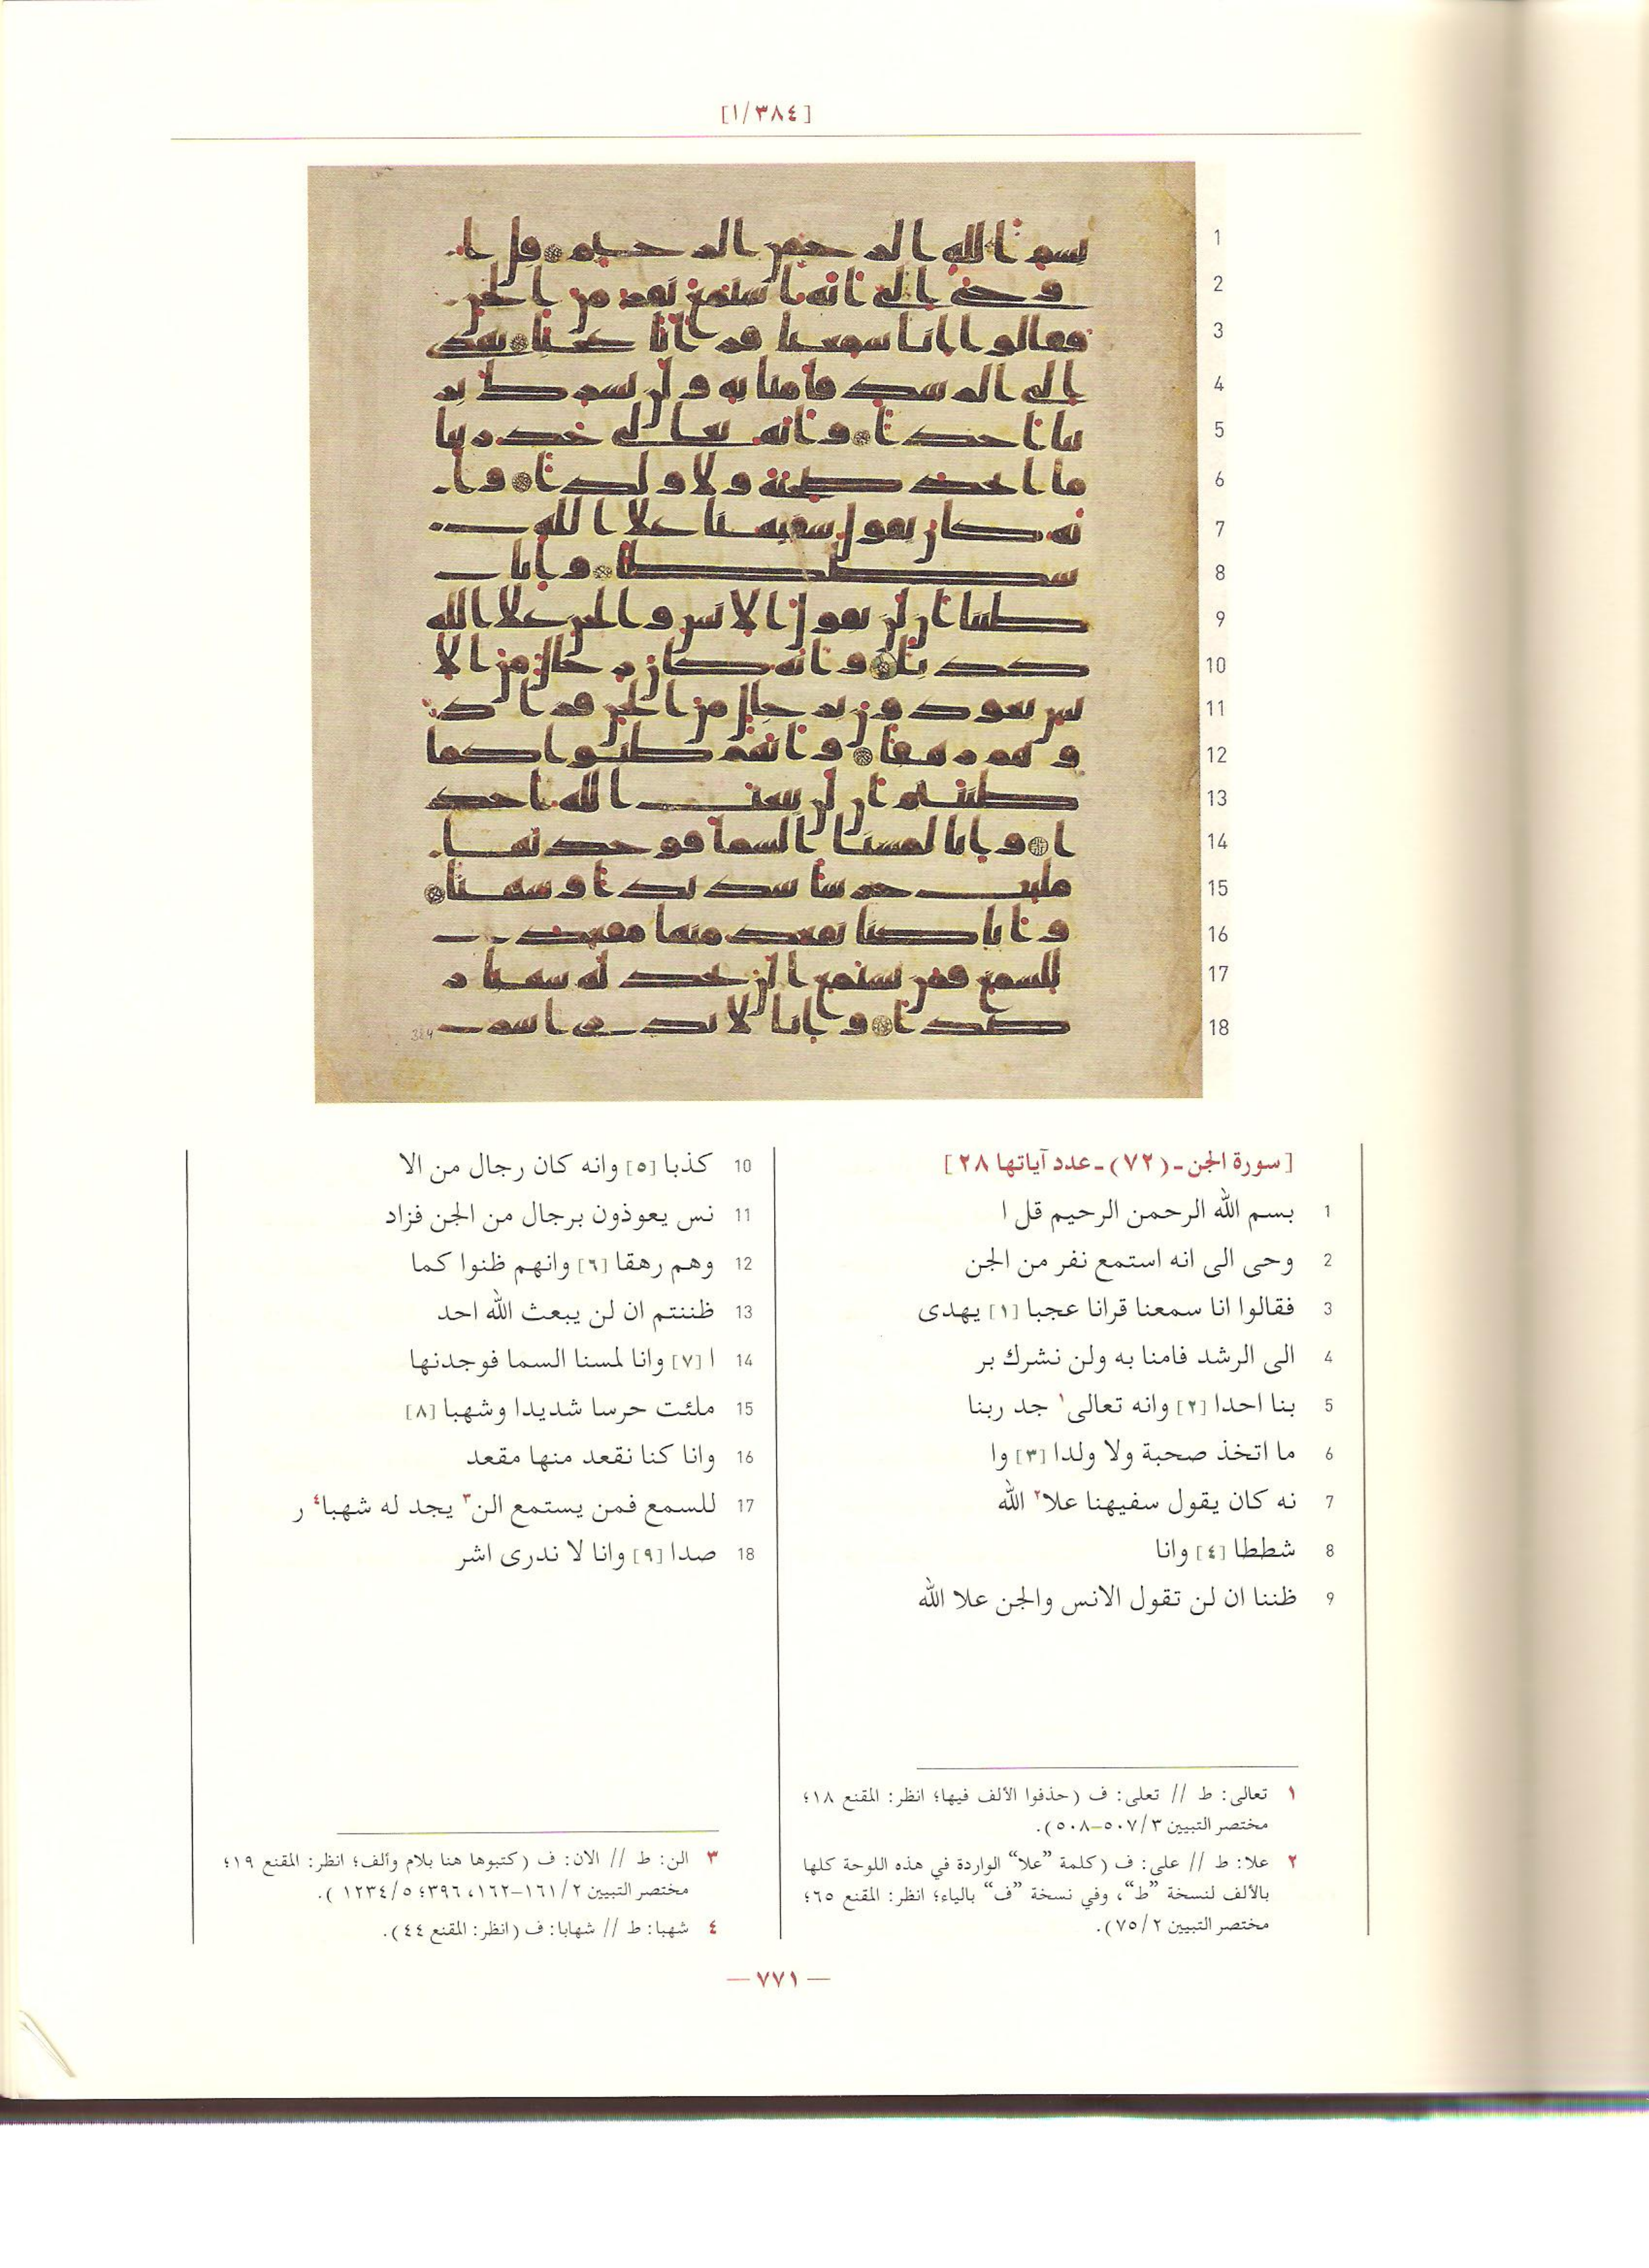 [١/٣٨٤]
1
2
3
4
5
6
7
8
9
10
11
12
13
14
15
16
17
18
[سورة الجن ـ (٧٢) ـ عدد آياتها ٢٨]
1 بسم الله الرحمن الرحيم قل ا
2 وحى الى انه استمع نفر من الجن
3 فقالوا انا سمعنا قرانا عجبا [١] يهدى
4 الى الرشد فامنا به ولن نشرك بر
5 بنا احدا [٢] وانه تعالى١ جد ربنا
6 ما اتخذ صحبة ولا ولدا [٣] وا
7 نه كان يقول سفيهنا علا٢ الله
8 شططا [٤] وانا
9 ظننا ان لن تقول الانس والجن علا الله
10 كذبا [٥] وانه كان رجال من الا
11 نس يعوذون برجال من الجن فزاد
12 وهم رهقا [٦] وانهم ظنوا كما
13 ظننتم ان لن يبعث الله احد
14 ا [٧] وانا لمسنا السما فوجدنها
15 ملئت حرسا شديدا وشهبا [٨]
16 وانا كنا نقعد منها مقعد
17 للسمع فمن يستمع الن٣ يجد له شهبا٤ ر
18 صدا [٩] وانا لا ندرى اشر
١ تعالى: ط // تعلى: ف (حذفوا الألف فيها؛ انظر: المقنع ١٨؛
مختصر التبيين ٥٠٧/٣–٥٠٨).
٢ علا: ط // على: ف (كلمة ”علا“ الواردة في هذه اللوحة كلها
بالألف لنسخة ”ط“، وفي نسخة ”ف“ بالياء؛ انظر: المقنع ٦٥؛
مختصر التبيين ٧٥/٢).
٣ الن: ط // الان: ف (كتبوها هنا بلام وألف؛ انظر: المقنع ١٩؛
مختصر التبيين ١٦١/٢–١٦٢، ٣٩٦؛ ١٢٣٤/٥).
٤ شهبا: ط // شهابا: ف (انظر: المقنع ٤٤).
— ٧٧١ —